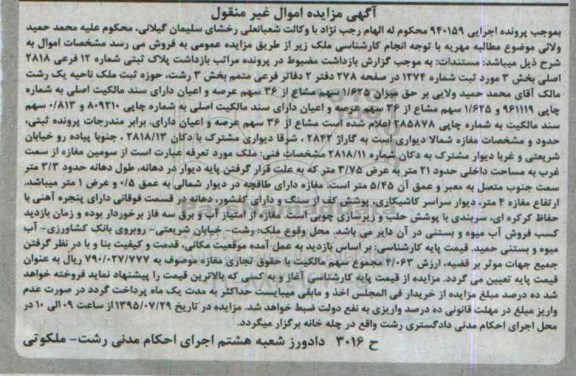 آگهی مزایده اموال غیر منقول
بموجب پرونده اجرایی ۹۴۰۱۵۹ محکوم له الهام رجب نژاد با وکالت شعبانعلی رخشای سلیمان گیلانی، محکوم علیه محمد حمید
ولائی موضوع مطالبه مهریه با توجه انجام کارشناسی ملک زیر از طریق مزایده عمومی به فروش می رسد مشخصات اموال به
شرح ذیل میباشد: مستندات: به موجب گزارش بازداشت مضبوط در پرونده مراتب بازداشت پلاک ثبتی شماره ۱۲ فرعی ۲۸۱۸
اصلی بخش ۳ مورد ثبت شماره ۱۲۷۴ در صفحه ۲۷۸ دفتر ۲ دفاتر فرعی متمم بخش ۳ رشت، حوزه ثبت ملک ناحیه یک رشت
مالک آقای محمد حمید ولایی بر حق میزان ۱/۶۲۵ سهم مشاع از ۳۶ سهم عرصه و اعیان دارای سند مالکیت اصلی به شماره
چاپی ۹۶۱۱۱۹ و ۱/۶۲۵ سهم مشاع از ۳۶ سهم عرصه و اعیان دارای سند مالکیت اصلی به شماره چاپی ۸۰۹۲۱۰ و ۰/۸۱۳ سهم
سند مالکیت به شماره چاپی ۲۸۵۸۷۸ اعلام شده است مشاع از ۳۶ سهم عرصه و اعیان دارای، برابر مندرجات پرونده ثبتی،
حدود و مشخصات مغازه شمالا دیواری است به گاراژ ۲۸۴۲ ، شرقا دیواری مشترک با دکان ۲۸۱۸/۱۳ ، جنوبا پیاده رو خیابان
شریعتی و غربا دیوار مشترک به دکان شماره ۲۸۱۸/۱۱ مشخصات فنی: ملک مورد تعرفه عبارت است از سومین مغازه از سمت
غرب به مساحت داخلی حدود ۲۱ متر به عرض ۳/۷۵ متر که به علت قرار گرفتن پایه دیوار در دهانه، طول دهانه حدود ۳/۳ متر
سمت جنوب متصل به معبر و عمق آن ۵/۴۵ متر است. مغازه دارای طاقچه در دیوار شمالی به عمق ۰/۵ و عرض ۱ متر میباشد.
ارتفاع مغازه ۴ متر، دیوار سراسر کاشیکاری، پوشش کف از سنگ و دارای کفشور، دهانه در قسمت فوقانی دارای پنجره آهنی با
حفاظ کرکره ای، سربندی با پوشش حلب و زیرسازی چوبی است. مغازه از امتیاز آب و برق سه فاز برخوردار بوده و زمان بازدید
کسب فروش آب میوه و بستنی در آن دایر می باشد. محل وقوع ملک: رشت- خیابان شریعتی- روبروی بانک کشاورزی- آب
میوه و بستنی حمید. قیمت پایه کارشناسی: بر اساس بازدید به عمل آمده موقعیت مکانی، قدمت و کیفیت بنا و با در نظر گرفتن
جمیع جهات موثر بر قضیه، ارزش ۴/۰۶۳ سهم مجموع سهم مالکیت با حقوق تجاری مغازه موصوف به ۷۹۰/۰۲۷/۷۷۷ ریال به عنوان
قیمت پایه تعیین می گردد. مزایده از قیمت پایه کارشناسی آغاز و به کسی که بالاترین قیمت را پیشنهاد نماید فروخته خواهد
شد ده درصد مبلغ مزایده از خریدار فی المجلس اخذ و مابقی میبایست حداکثر به مدت یک ماه پرداخت گردد در صورت عدم
واریز مبلغ در مهلت قانونی ده درصد واریزی به نفع دولت ضبط خواهد شد. مزایده در تاریخ ۱۳۹۵/۰۷/۲۹از ساعت ۰۹ الی ۱۰ در
محل اجرای احکام مدنی دادگستری رشت واقع در چله خانه برگزار میگردد.
ح ۳۰۱۶ دادورز شعبه هشتم اجرای احکام مدنی رشت- ملکوتی